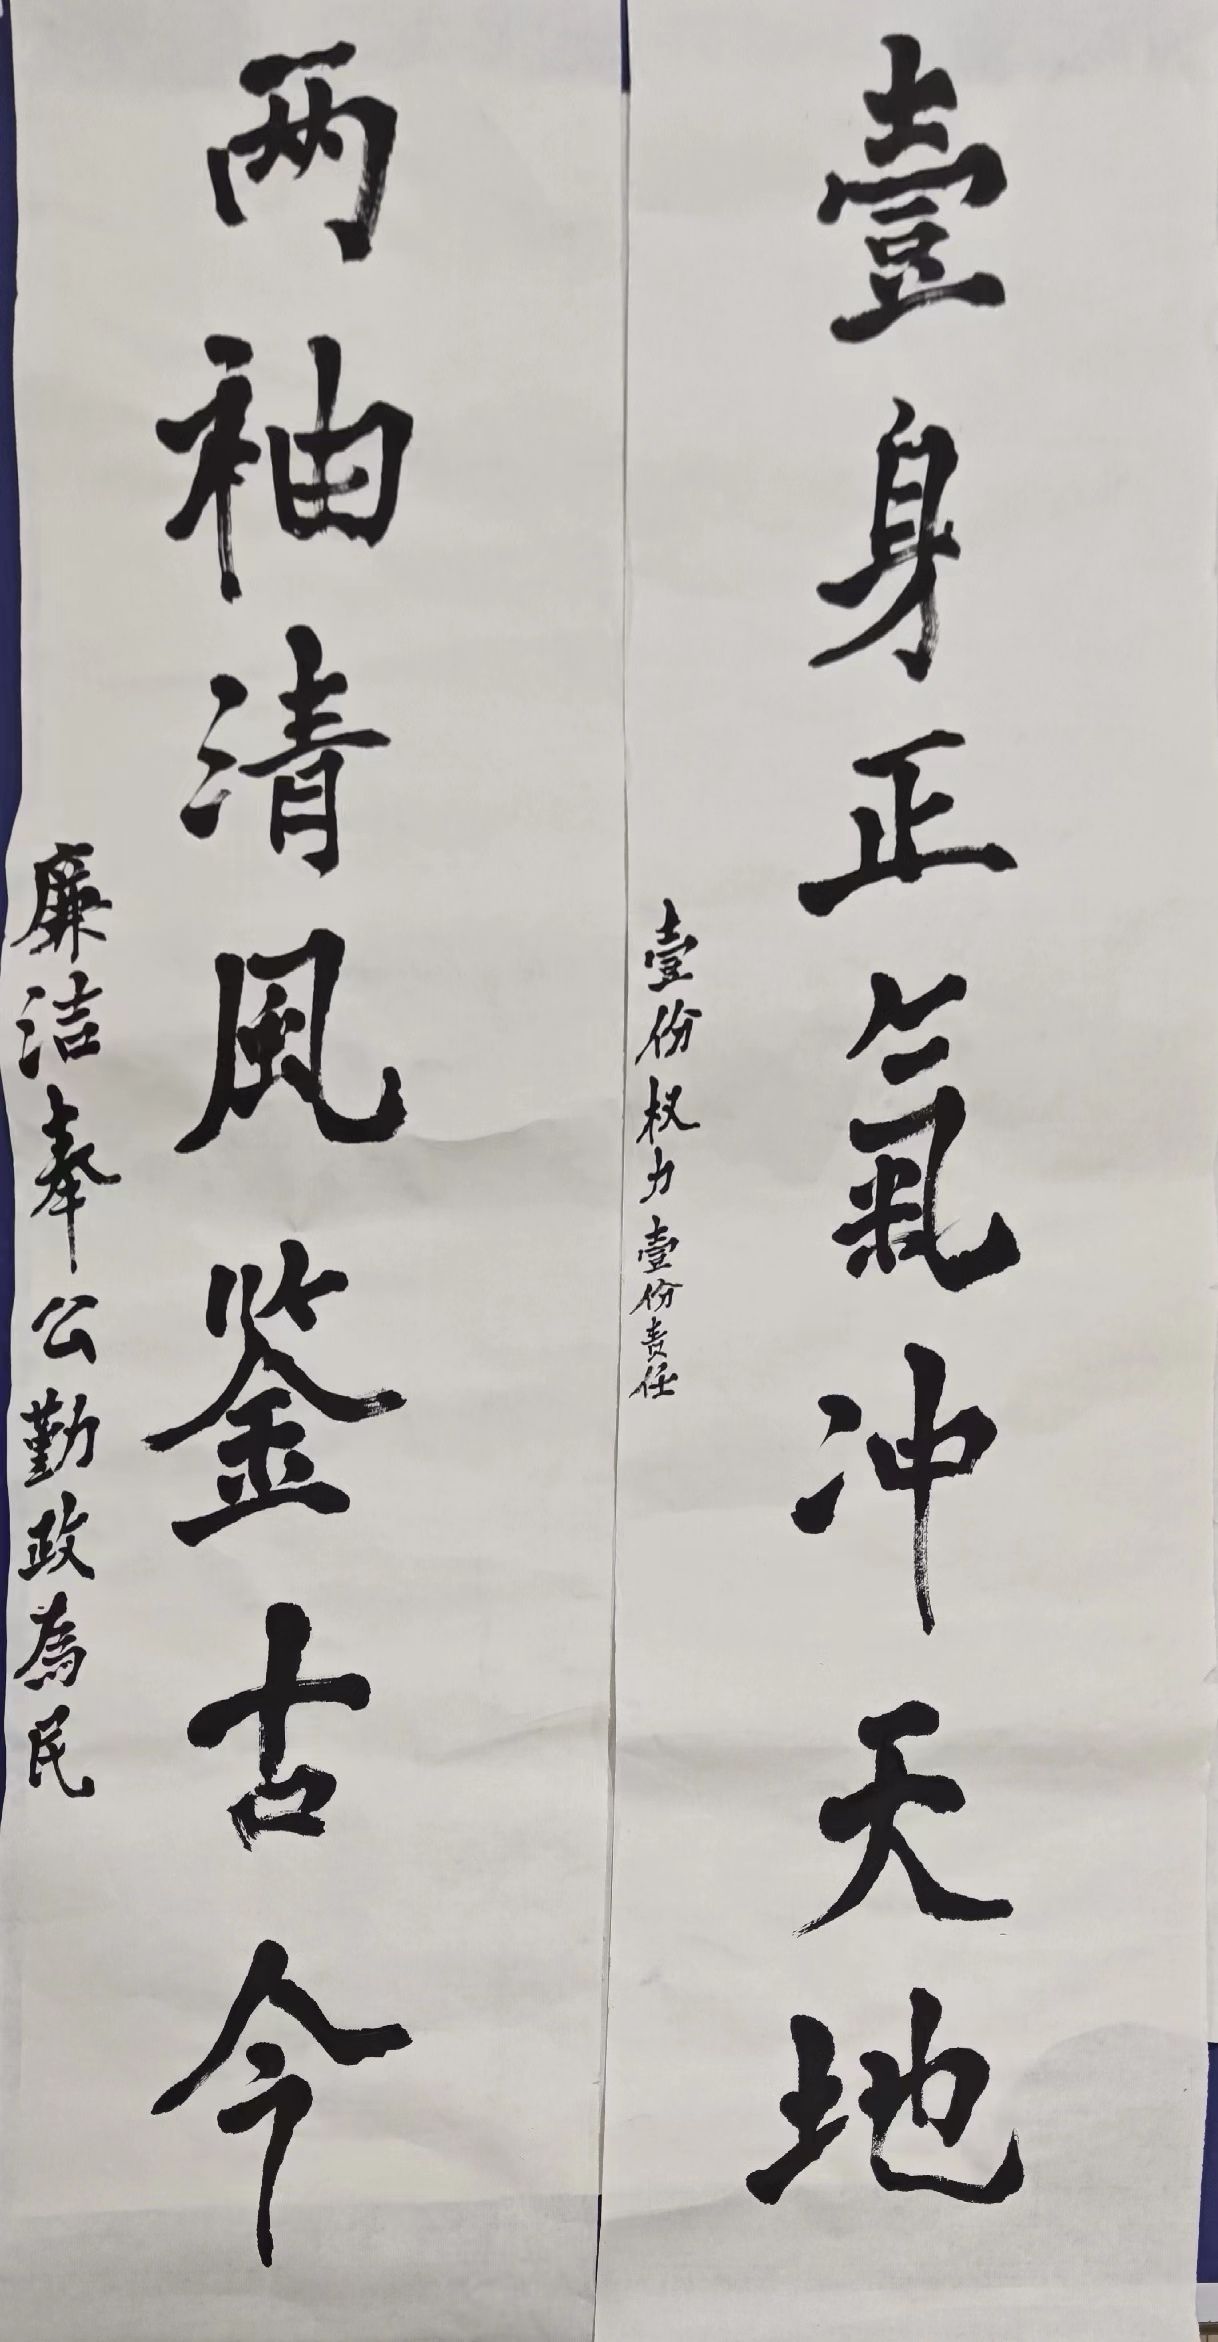 壹身正氣冲天地
壹份权力壹份责任
两袖清風鉴古今
廉洁奉公勤政為民